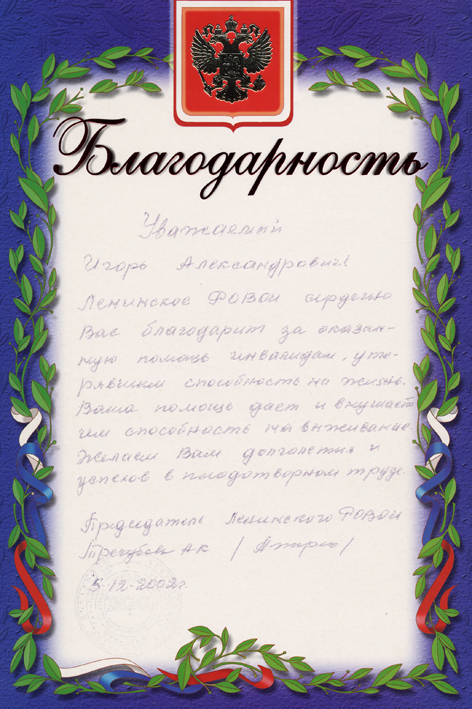 Благодарность
Уважаемый
Игорь Александрович!
Ленинское РОВОИ сердечно
Вас благодарит за оказан-
ную помощь инвалидам, уте-
рявшим способность на жизнь.
Ваша помощь дает и внушает
им способность на выживание.
Желаем Вам долголетия и
успехов в плодотворном труде.
Председатель Ленинского РОВОИ
А К
5-12-2002г.